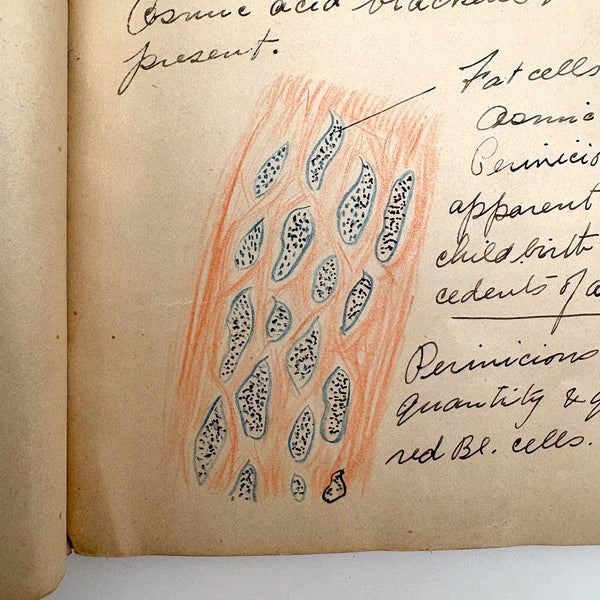 Osmic acid blackens
present.
Fat cells
Osmic
Perinicio
apparent
child birth
cedents of a
Perinicions
quantity & q
red Bl. cells.